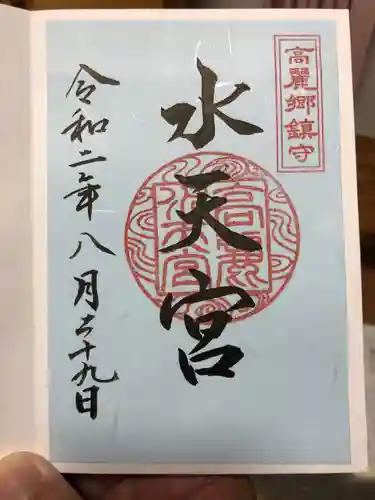 高麗郷鎮守
水天宮
高麗水天宮
令和二年八月二十九日